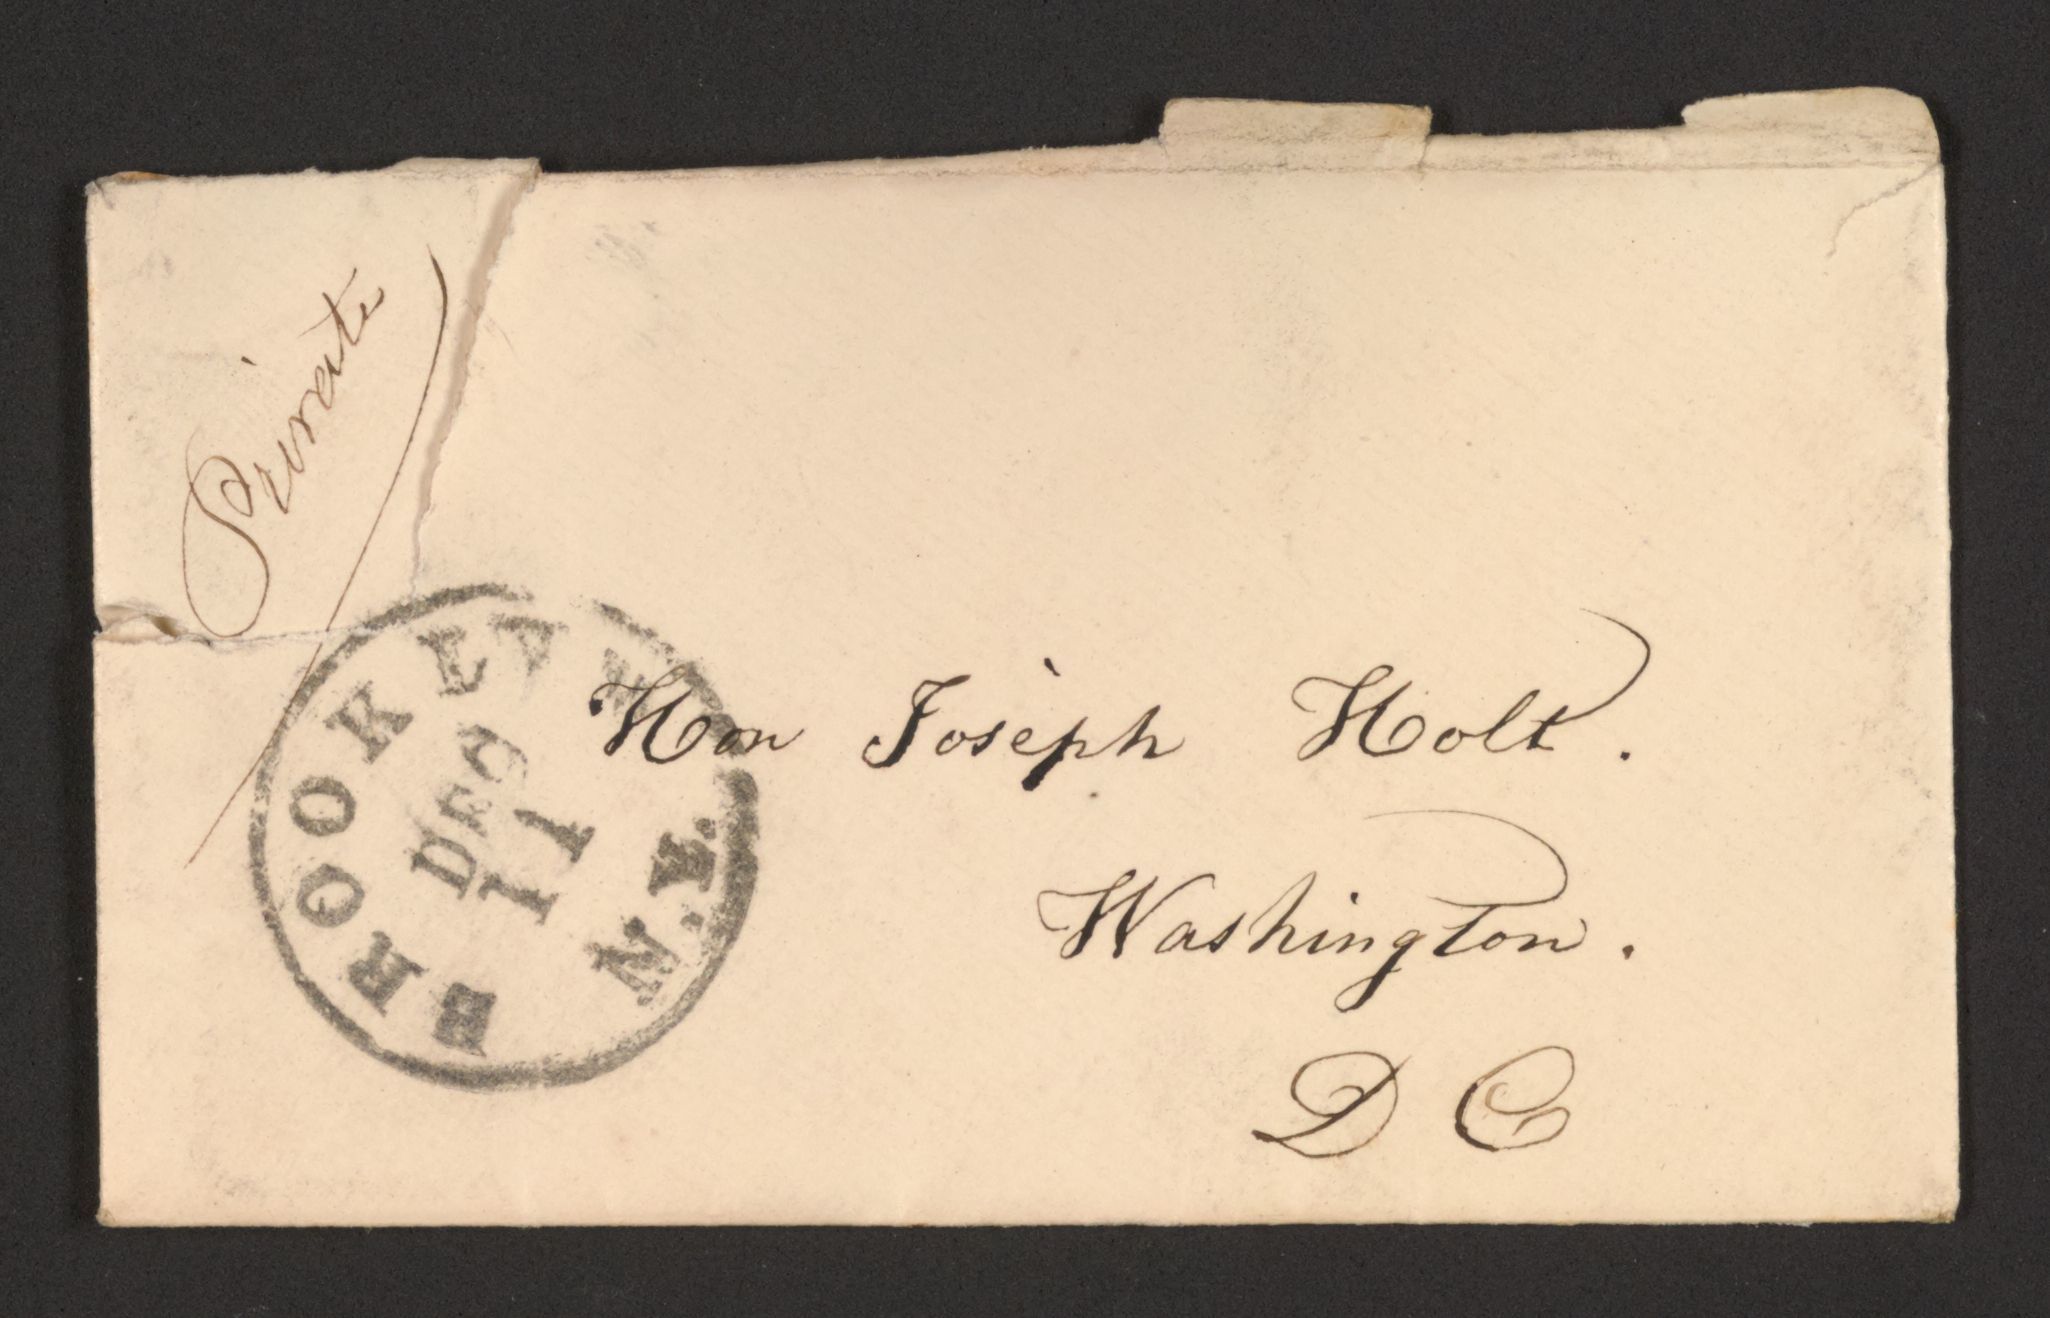 Private
BROOKLYN
N.Y.
DEC
11
Hon Joseph Holt.
Washington.
D C